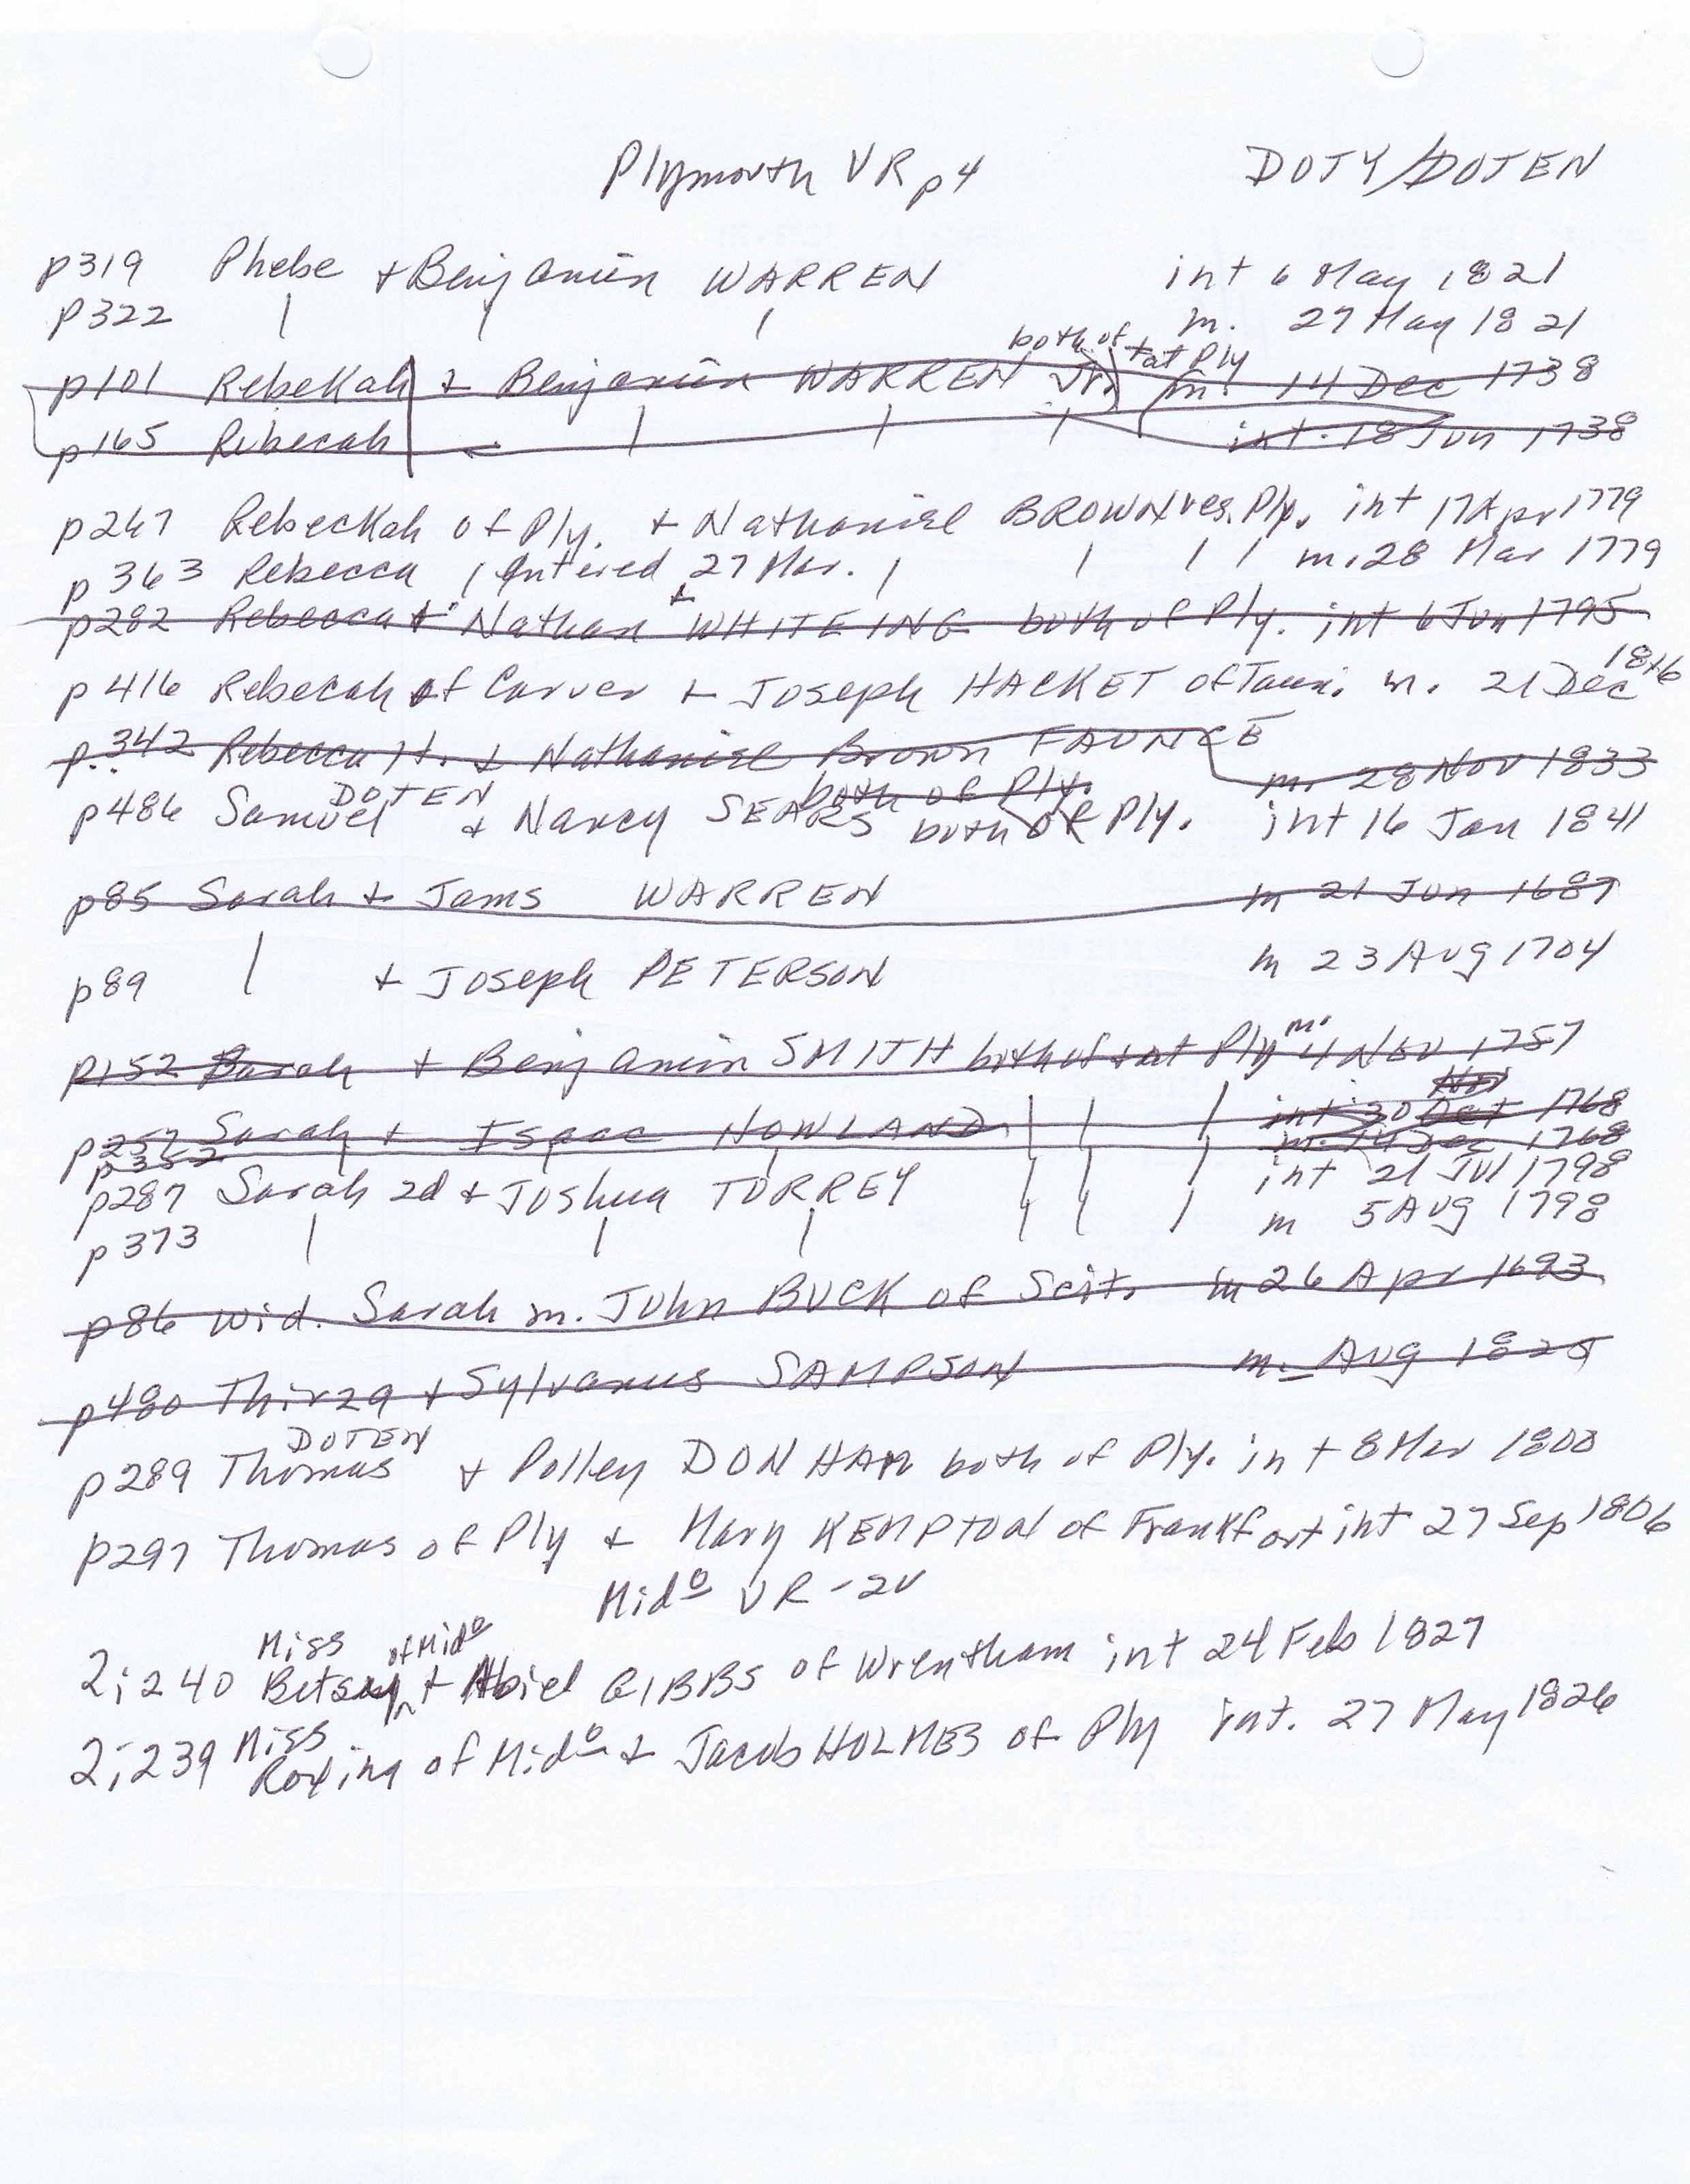 Plymouth VR p4 DOTY/DOTEN
p319 Phebe + Benjamin WARREN int 6 May 1821
p322 | | | m. 27 May 1821
both of + at Ply
p101 Rebekah + Benjamin WARREN Jr. m. 14 Dec 1738
p165 Rebecah | | | int. 18 Jun 1738
p267 Rebeckah of Ply. + Nathaniel BROWN res. Ply. int 17 Apr 1779
p363 Rebecca (Entered 27 Mar. | | | | m. 28 Mar 1779
p282 Rebecca + Nathan WHITEING both of Ply. int 6 Jun 1795
p416 Rebecah of Carver + Joseph HACKET of Taun. m. 21 Dec 1816
p.342 Rebecca H. + Nathaniel Brown FAUNCE m. 28 Nov 1833
both of Ply.
DOTEN
p486 Samuel + Nancy SEARS both of Ply. int 16 Jan 1841
p85 Sarah + Jams WARREN m 21 Jun 1687
p89 | + Joseph PETERSON m 23 Aug 1704
p152 Sarah + Benjamin SMITH both of + at Ply m. 4 Nov 1757
Nov
p257 Sarah + Isaac HOWLAND | | | int 30 Oct 1768
p352 | | | | m. 14 Dec 1768
p287 Sarah 2d + Joshua TORREY | | | int 21 Jul 1798
p373 | | | | | | m 5 Aug 1798
p86 Wid. Sarah m. John BUCK of Scit. m 26 Apr 1693
p480 Thirza + Sylvanus SAMPSON m. _ Aug 1825
DOTEN
p289 Thomas + Polley DONHAM both of Ply. int 8 Mar 1800
p297 Thomas of Ply + Mary KEMPTON of Frankfort int 27 Sep 1806
Midº VR - 2v
Miss of Midº
2;240 Betsey + Abiel GIBBS of Wrentham int 24 Feb 1827
Miss
2;239 Roxina of Midº + Jacob HOLMES of Ply int. 27 May 1826